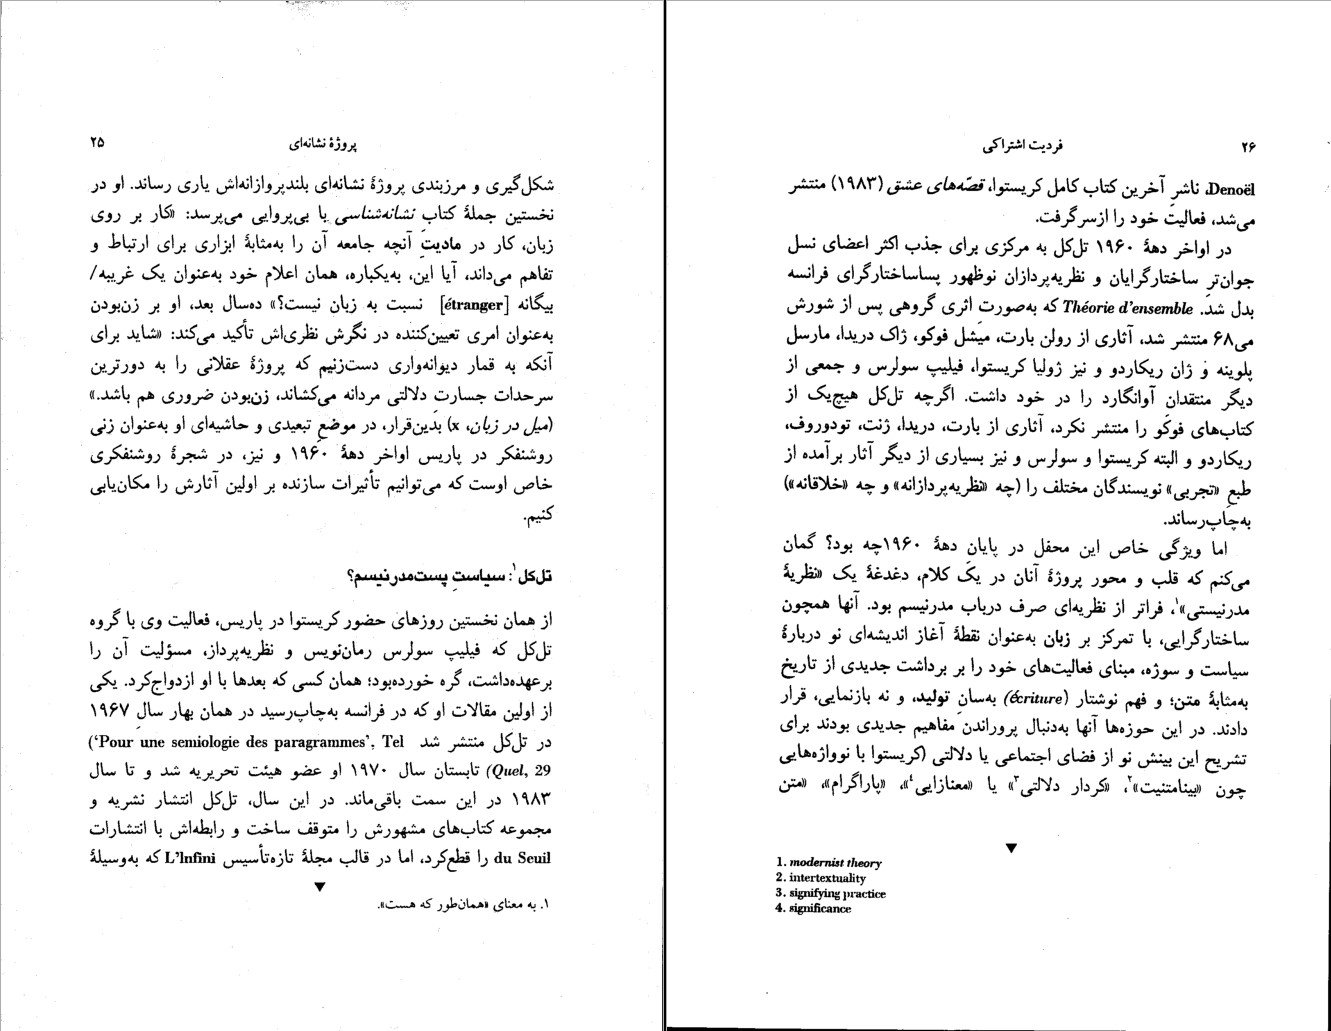 پروژهٔ نشانه‌ای ۲۵
شکل‌گیری و مرزبندی پروژهٔ نشانه‌ای بلندپروازانه‌اش یاری رساند. او در
نخستین جملهٔ کتاب نشانه‌شناسی با بی‌پروایی می‌پرسد: «کار بر روی
زبان، کار در مادیتِ آنچه جامعه آن را به‌مثابهٔ ابزاری برای ارتباط و
تفاهم می‌داند، آیا این، به‌یکباره، همان اعلام خود به‌عنوان یک غریبه/
بیگانه [étranger] نسبت به زبان نیست؟» ده‌سال بعد، او بر زن‌بودن
به‌عنوان امری تعیین‌کننده در نگرش نظری‌اش تأکید می‌کند: «شاید برای
آنکه به قمار دیوانه‌واری دست‌زنیم که پروژهٔ عقلانی را به دورترین
سرحدات جسارت دلالتی مردانه می‌کشاند، زن‌بودن ضروری هم باشد.»
(میل در زبان، x) بدین‌قرار، در موضعِ تبعیدی و حاشیه‌ای او به‌عنوان زنی
روشنفکر در پاریس اواخر دههٔ ۱۹۶۰ و نیز، در شجرهٔ روشنفکری
خاص اوست که می‌توانیم تأثیرات سازنده بر اولین آثارش را مکان‌یابی
کنیم.
تل‌کل۱: سیاستِ پست‌مدرنیسم؟
از همان نخستین روزهای حضور کریستوا در پاریس، فعالیت وی با گروه
تل‌کل که فیلیپ سولرس رمان‌نویس و نظریه‌پرداز، مسؤلیت آن را
برعهده‌داشت، گره خورده‌بود؛ همان کسی که بعدها با او ازدواج‌کرد. یکی
از اولین مقالات او که در فرانسه به‌چاپ‌رسید در همان بهار سالِ ۱۹۶۷
در تل‌کل منتشر شد (‘Pour une semiologie des paragrammes’, Tel
Quel, 29) تابستان سال ۱۹۷۰ او عضو هیئت تحریریه شد و تا سال
۱۹۸۳ در این سمت باقی‌ماند. در این سال، تل‌کل انتشار نشریه و
مجموعه کتاب‌های مشهورش را متوقف ساخت و رابطه‌اش با انتشارات
du Seuil را قطع‌کرد، اما در قالب مجلهٔ تازه‌تأسیس L’Infini که به‌وسیلهٔ
۱. به معنای «همان‌طور که هست».
۲۶ فردیت اشتراکی
Denoël، ناشرِ آخرین کتاب کامل کریستوا، قصّه‌های عشق (۱۹۸۳) منتشر
می‌شد، فعالیت خود را ازسرگرفت.
در اواخر دههٔ ۱۹۶۰ تل‌کل به مرکزی برای جذب اکثر اعضای نسل
جوان‌ترِ ساختارگرایان و نظریه‌پردازان نوظهور پساساختارگرای فرانسه
بدل شد. Théorie d’ensemble که به‌صورت اثری گروهی پس از شورش
می۶۸ منتشر شد، آثاری از رولن بارت، میشل فوکو، ژاک دریدا، مارسل
پلوینه و ژان ریکاردو و نیز ژولیا کریستوا، فیلیپ سولرس و جمعی از
دیگر منتقدان آوانگارد را در خود داشت. اگرچه تل‌کل هیچ‌یک از
کتاب‌های فوکو را منتشر نکرد، آثاری از بارت، دریدا، ژنت، تودوروف،
ریکاردو و البته کریستوا و سولرس و نیز بسیاری از دیگر آثار برآمده از
طبعِ «تجربی» نویسندگان مختلف را (چه «نظریه‌پردازانه» و چه «خلاقانه»)
به‌چاپ‌رساند.
اما ویژگی خاص این محفل در پایان دههٔ ۱۹۶۰چه بود؟ گمان
می‌کنم که قلب و محور پروژهٔ آنان در یک کلام، دغدغهٔ یک «نظریهٔ
مدرنیستی»۱، فراتر از نظریه‌ای صرف درباب مدرنیسم بود. آنها همچون
ساختارگرایی، با تمرکز بر زبان به‌عنوان نقطهٔ آغاز اندیشه‌ای نو دربارهٔ
سیاست و سوژه، مبنای فعالیت‌های خود را بر برداشت جدیدی از تاریخ
به‌مثابهٔ متن؛ و فهم نوشتار (écriture) به‌سان تولید، و نه بازنمایی، قرار
دادند. در این حوزه‌ها آنها به‌دنبال پروراندنِ مفاهیم جدیدی بودند برای
تشریح این بینش نو از فضای اجتماعی یا دلالتی (کریستوا با نوواژه‌هایی
چون «بینامتنیت»۲، «کردار دلالتی۳» یا «معنازایی۴»، «پاراگرام»، «متن
1. modernist theory
2. intertextuality
3. signifying practice
4. significance